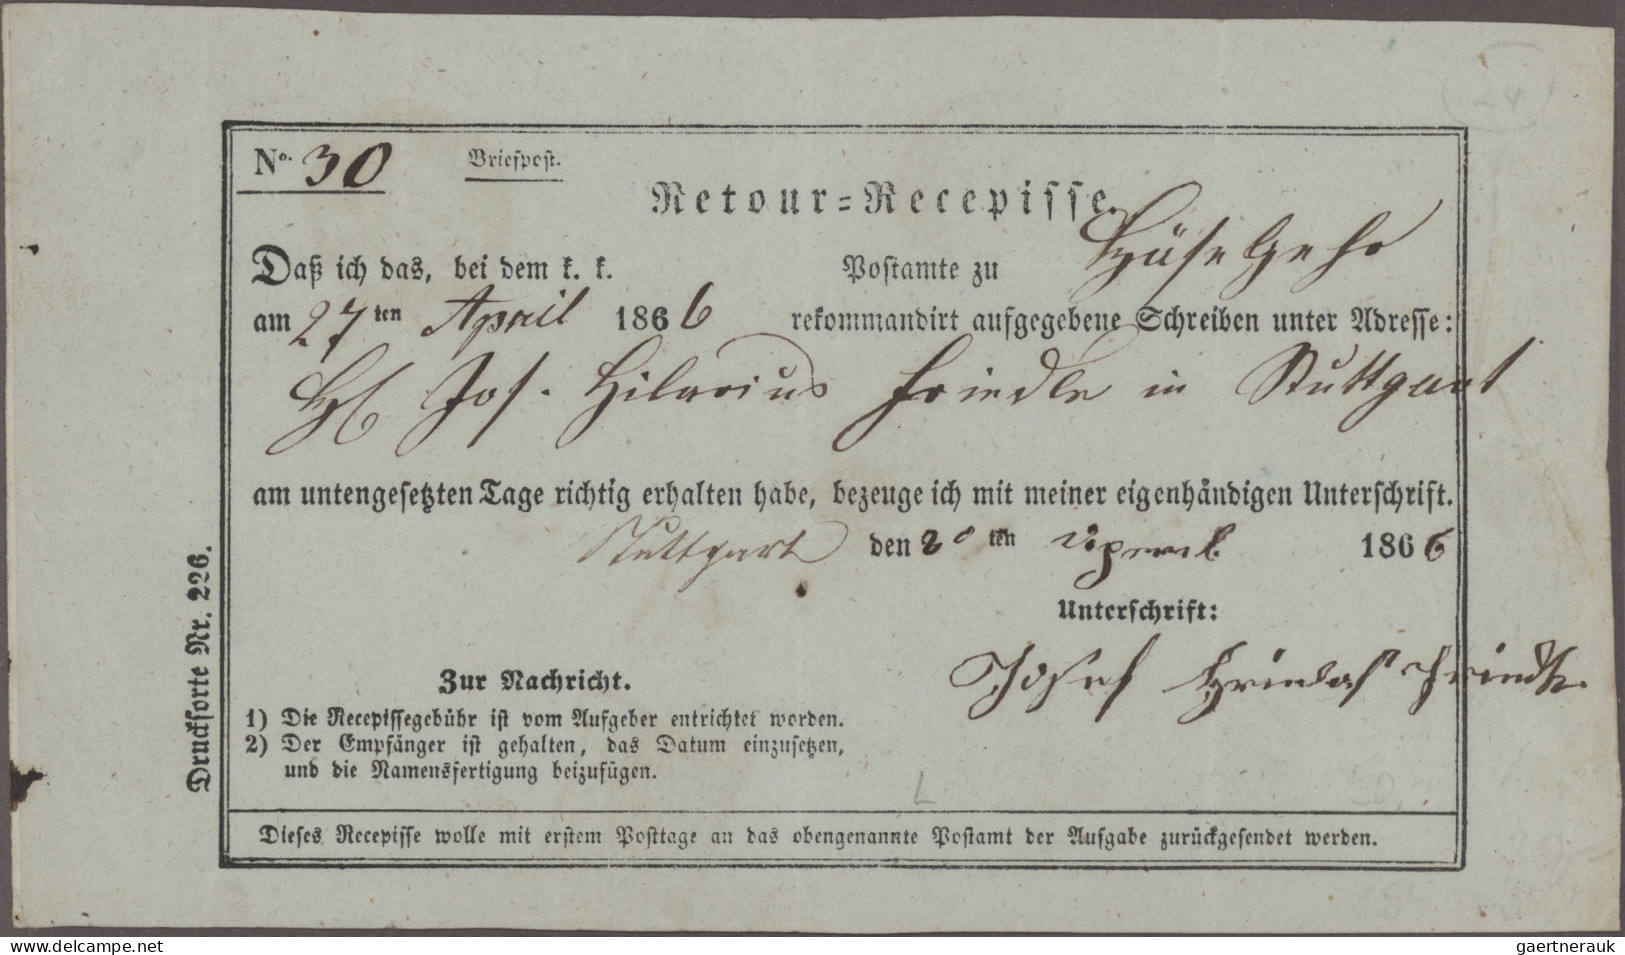 No. 30 Briefpost.
Retour-Recepisse.
Daß ich das, bei dem k. k. Postamte zu Häselgehr
am 27ten April 1866 rekommandirt aufgegebene Schreiben unter Adresse:
Jos. Hilarius Friedle in Stuttgart
am untengesetzten Tage richtig erhalten habe, bezeuge ich mit meiner eigenhändigen Unterschrift.
Stuttgart den ten 1866
Unterschrift:
Josef Friedle
Zur Nachricht.
1) Die Recepissegebühr ist vom Aufgeber entrichtet worden.
2) Der Empfänger ist gehalten, das Datum einzusetzen,
und die Namensfertigung beizufügen.
Dieses Recepisse wolle mit erstem Posttage an das obengenannte Postamt der Aufgabe zurückgesendet werden.
Drucksorte Nr. 226.
www.delcampe.net
gaertnerauk